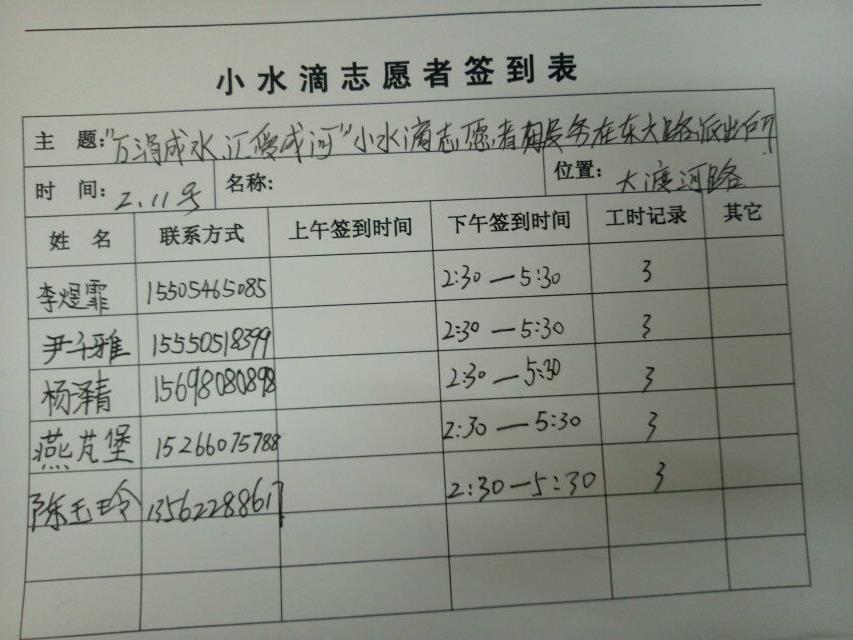 小水滴志愿者签到表
主 题："万涓成水,汇聚成河"小水滴志愿者服务在东大路派出所
时 间：2.11号 名称： 位置：大渡河路
姓 名 联系方式 上午签到时间 下午签到时间 工时记录 其它
李煜霏 15505465085 2:30—5:30 3
尹子雅 15550518399 2:30—5:30 3
杨泽清 15698080898 2:30—5:30 3
燕芃堡 15266075788 2:30—5:30 3
陈玉玲 13562288617 2:30—5:30 3